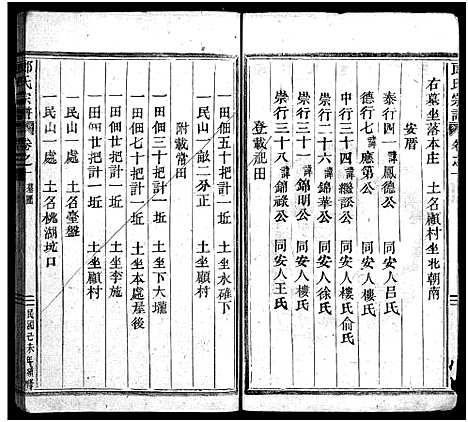 邱氏宗譜 卷之一
右墓坐落本庄 土名顧村坐北朝南
安厝
泰行四一諱鳳德公 同安人呂氏
德行七諱應第公 同安人樓氏
中行三十四諱繼訟公 同安人樓氏俞氏
崇行二十六諱錦華公 同安人徐氏
崇行三十一諱錦明公 同安人樓氏
崇行三十八諱錦祿公 同安人王氏
登載祀田
一田佃五十把計一坵 土坐永碓下
一民山一畝二分正 土坐顧村
附載常田
一田佃三十把計一坵 土坐下大壠
一田佃七十把計一坵 土坐本處屋後
一田佃三十把計一坵 土坐李施
一田佃廿把計一坵 土坐顧村
一民山一處 土名臺盤
一民山一處 土名桃湖坑口
邱氏宗譜 卷之一 墓圖 民國己未年續修